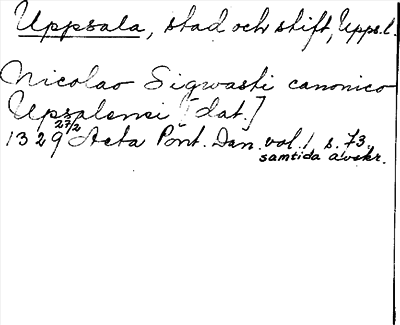 Uppsala, stad och stift, Upps.l.
Nicolao Sigwasti canonico
Upsalensi [dat.]
1329 27/2 Acta Pont. Dan. vol. 1 s. 73.
samtida avskr.